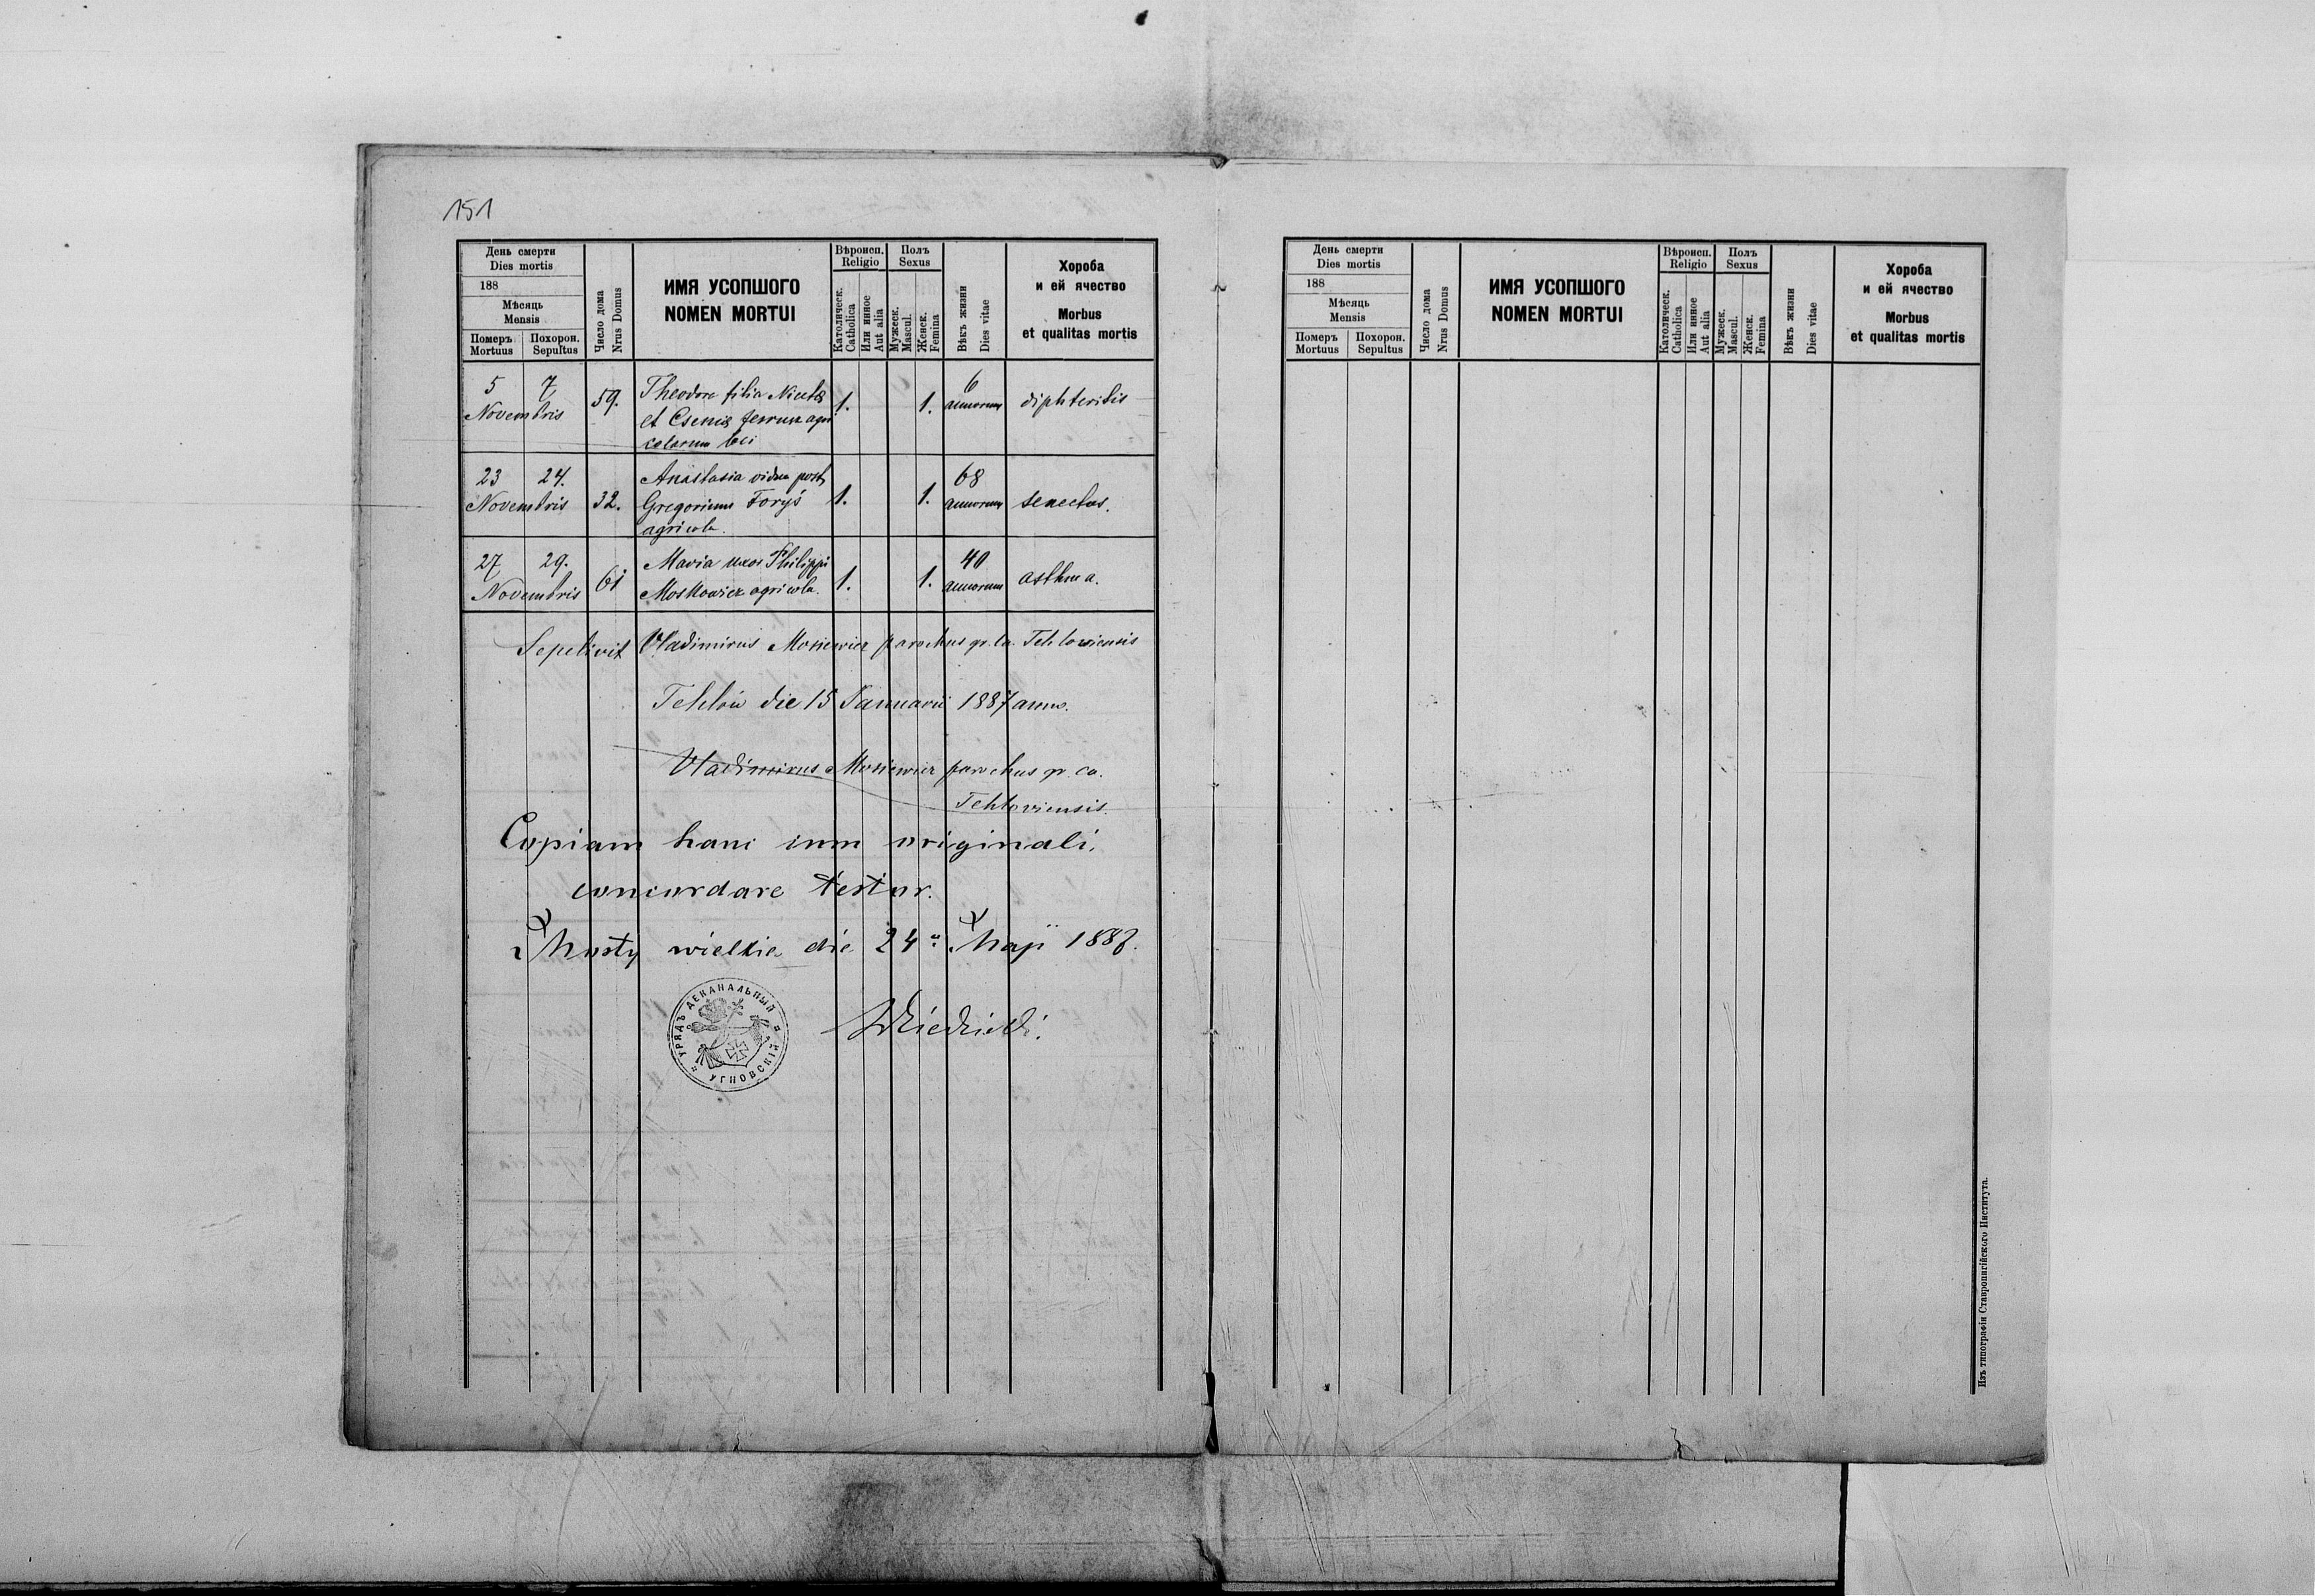 151
День смерти
Dies mortis
188
Мѣсяць
Mensis
Померъ
Mortuus
Похорон.
Sepultus
Число дома
Nrus Domus
ИМЯ УСОПШОГО
NOMEN MORTUI
Вѣроисп.
Religio
Католическ.
Catholica
Или инное
Aut alia
Полъ
Sexus
Мужеск.
Mascul.
Женск.
Femina
Вѣкъ жизни
Dies vitae
Хороба
и ей ячество
Morbus
et qualitas mortis
5 7
Novembris
59.
Theodora filia Nicetæ
et Eseniæ agri
colarum loci
1. 1.
6
annorum
diphteritis
23 24.
Novembris
32.
Anastasia vidua post
Gregorium Foryś
agricola.
1. 1.
68
annorum
senectus.
27 29.
Novembris
61
Maria uxor Philippi
Moskowicz agricola.
1. 1.
40
annorum
asthma.
Sepelivit Vladimirus parochus gr. ca. Tehloviensis
Tehlów die 15 Januarii 1887 anno.
Vladimirus parochus gr. ca.
Tehloviensis.
Copiam hanc cum originali
concordare testor.
Mosty wielkie die 24a Maji 1887.
УРЯДЪ ДЕКАНАЛЬНЫЙ
УГНОВСКІЙ
День смерти
Dies mortis
188
Мѣсяць
Mensis
Померъ
Mortuus
Похорон.
Sepultus
Число дома
Nrus Domus
ИМЯ УСОПШОГО
NOMEN MORTUI
Вѣроисп.
Religio
Католическ.
Catholica
Или инное
Aut alia
Полъ
Sexus
Мужеск.
Mascul.
Женск.
Femina
Вѣкъ жизни
Dies vitae
Хороба
и ей ячество
Morbus
et qualitas mortis
Изъ типографіи Ставропигійского Института.